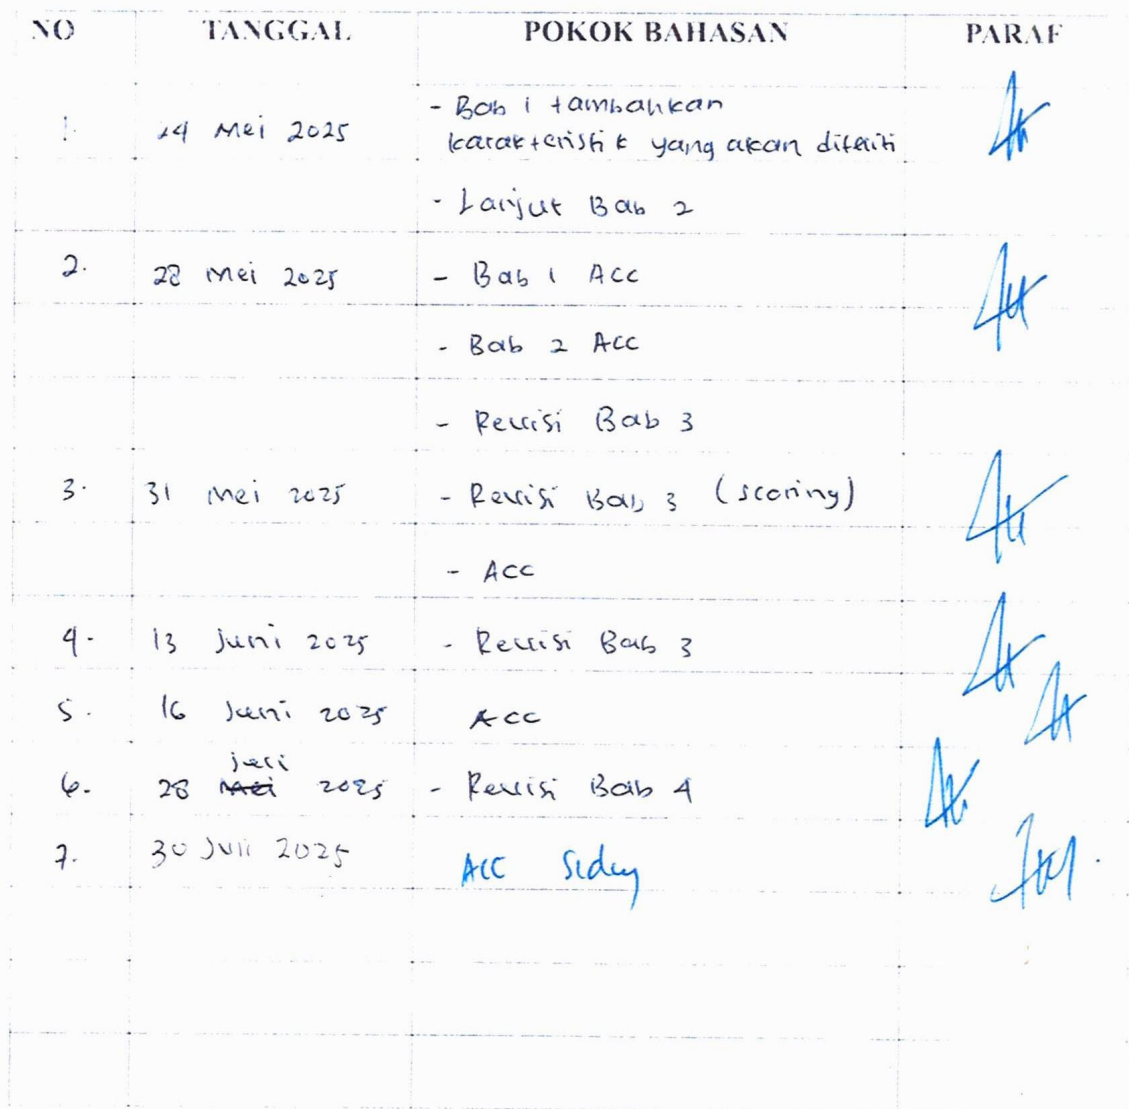 NO TANGGAL POKOK BAHASAN PARAF
1. 24 Mei 2025 - Bab 1 tambahkan
karakteristik yang akan diteliti
- Lanjut Bab 2
2. 28 Mei 2025 - Bab 1 Acc
- Bab 2 Acc
- Revisi Bab 3
3. 31 Mei 2025 - Revisi Bab 3 (scoring)
- Acc
4. 13 Juni 2025 - Revisi Bab 3
5. 16 Juni 2025 Acc
juli
6. 28 Mei 2025 - Revisi Bab 4
7. 30 Juli 2025 Acc Sidang